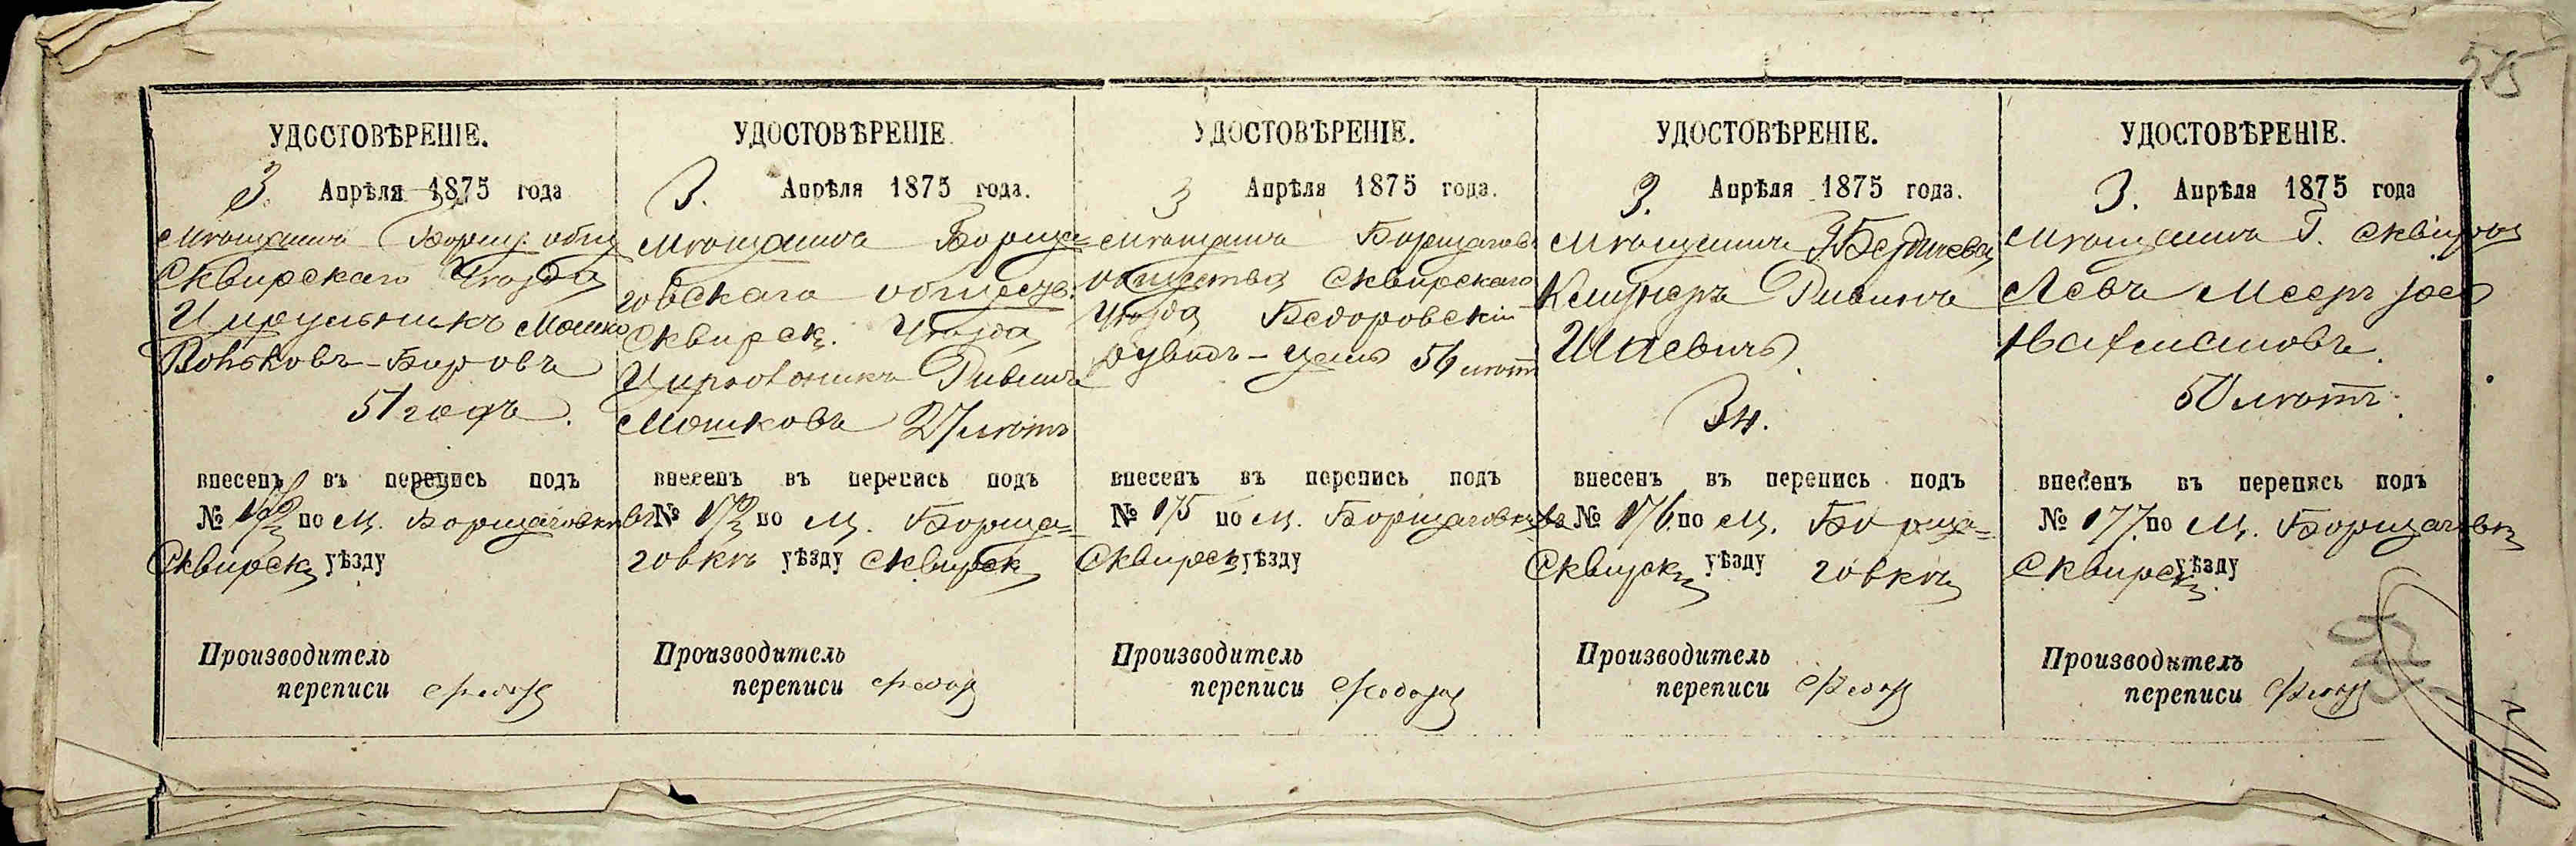 585
УДОСТОВѢРЕНІЕ.
3. Апрѣля 1875 года
Мѣщанинъ Борщ. общ
Сквирскаго Уѣзда
Цирульникъ Мошко
Вольковъ-Боровъ
51 годъ.
внесенъ въ перепись подъ
№ по М. Борщаговкѣ
Сквирск уѣзду
Производитель
переписи
УДОСТОВѢРЕНІЕ
3. Апрѣля 1875 года.
Мѣщанинъ Борща-
говскаго общеcтв:
Сквирск. Уѣзда
Цирульникъ
Мошковъ 27 лѣтъ
внесенъ въ перепись подъ
№ по М. Борща=
говкѣ уѣзду Сквирск
Производитель
переписи
УДОСТОВѢРЕНІЕ.
3 Апрѣля 1875 года.
Мѣщанинъ Борщагов:
общества Сквирскаго
Уѣзда
56 лѣтъ
внесенъ въ перепись подъ
№ 175 по М. Борщаговкѣ
Сквирск уѣзду
Производитель
переписи
УДОСТОВѢРЕНІЕ.
3. Апрѣля 1875 года.
Мѣщанинъ Г. Бердичева
Шаевичъ
34.
внесенъ въ перепись подъ
№ 176 по М. Борща=
Сквирск уѣзду говкѣ
Производитель
переписи
УДОСТОВѢРЕНІЕ.
3. Апрѣля 1875 года
Мѣщанинъ Г. Сквиры
Мееръ
50 лѣтъ.
внесенъ въ перепись подъ
№ 177. по М. Борщаговк
Сквирск уѣзду
Производитель
переписи